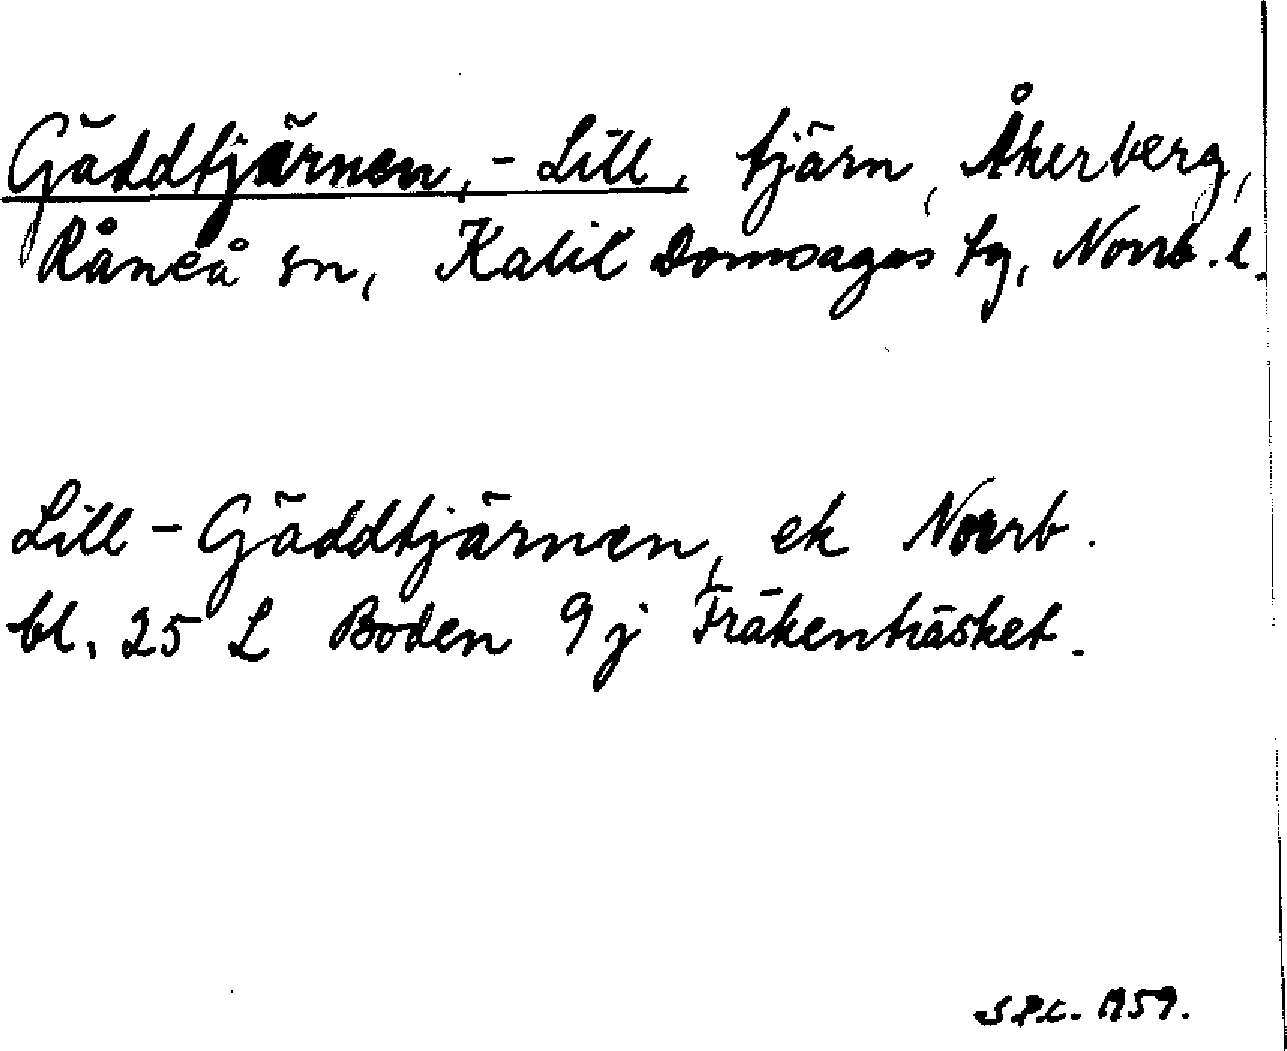 Gäddtjärnen, - Lill, tjärn, Åkerberg,
Råneå sn, Kalix Domsagas tg, Norrb. l.
Lill-Gäddtjärnen, ek Norrb.
bl. 25 L Boden 9 j Fräkenträsket.
1959.